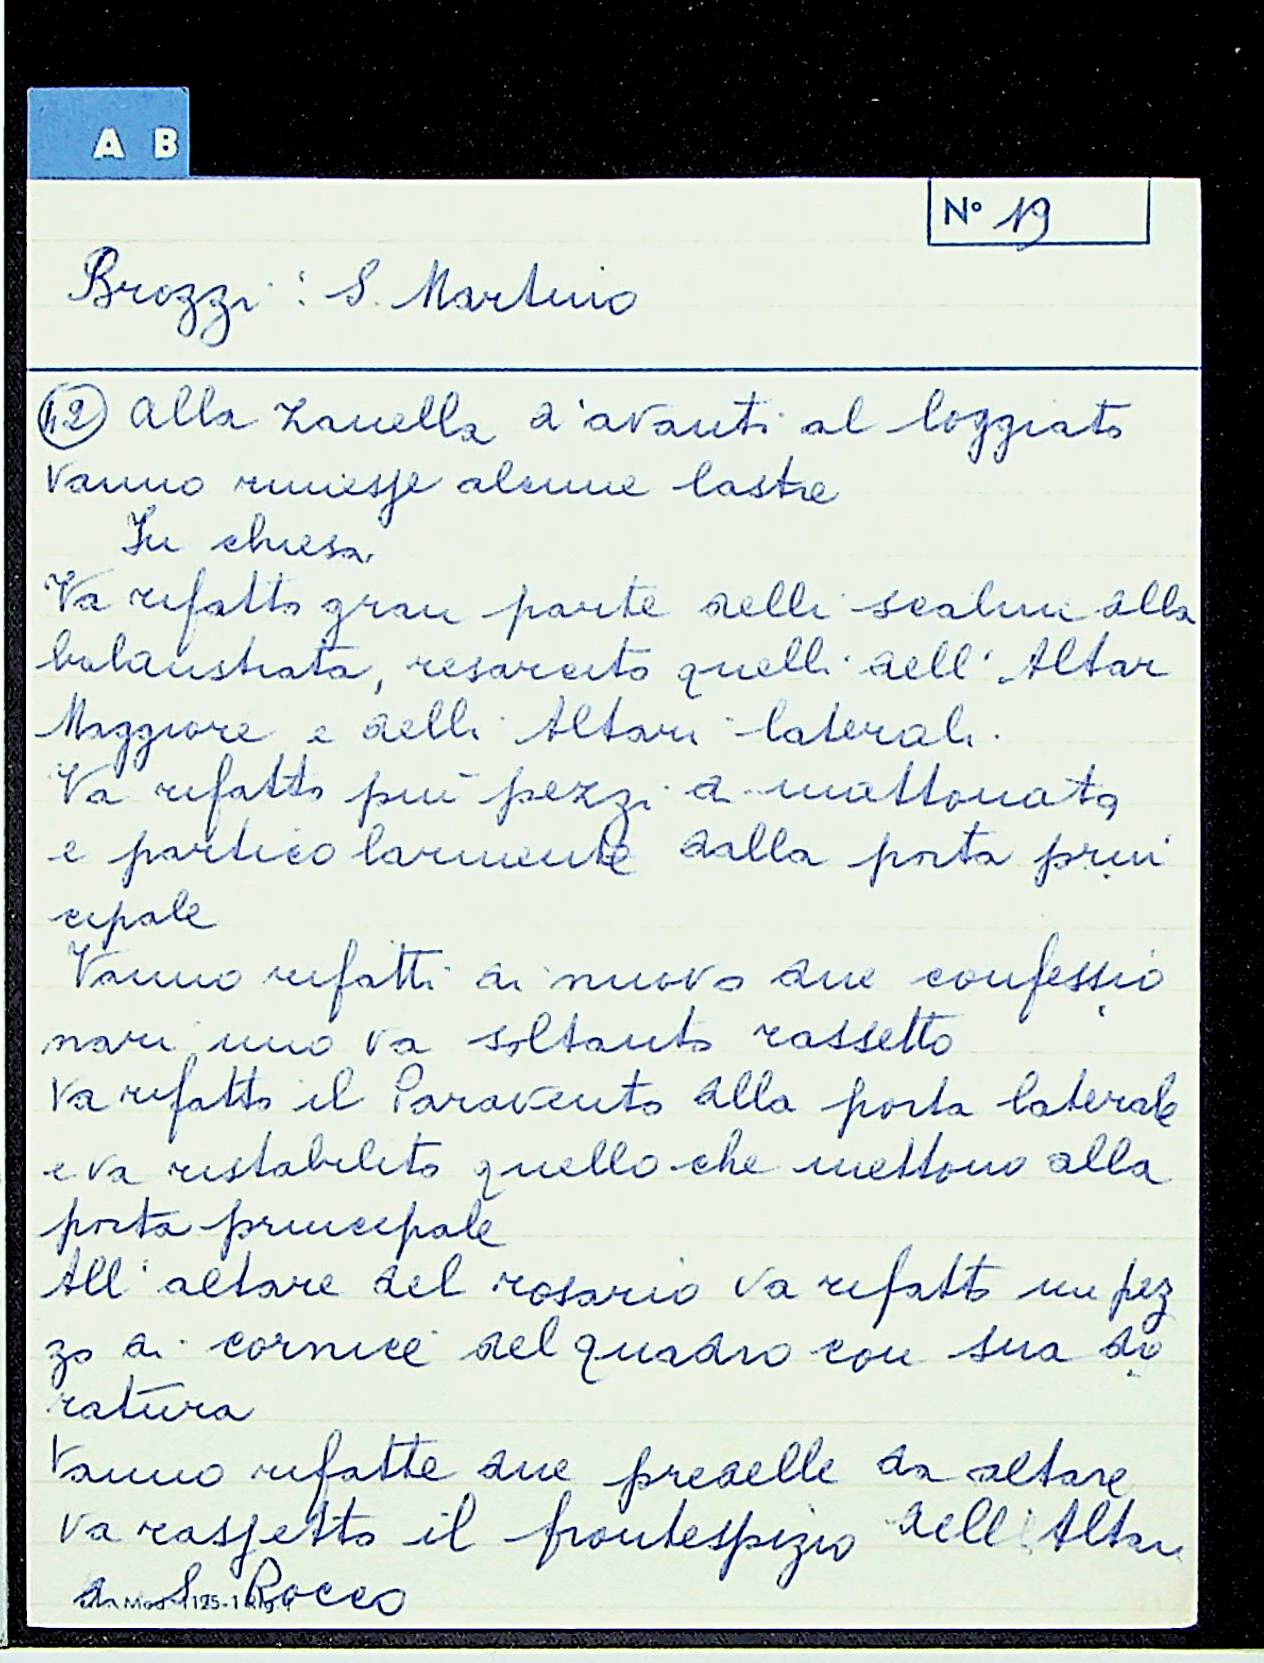 A B
Nº 19
Brozzi: S. Martino
42 Alla zanella d'avanti al loggiato
vanno rimesse alcune lastre
In chiesa
Va rifatto gran parte delli scalini alla
balaustrata, resarcito quelli dell'Altar
Maggiore e delli Altari laterali.
Va rifatto più pezzi di mattonato,
e particolarmente dalla porta prin
cipale
Vanno rifatti di nuovo due confessio
nari, uno va soltanto rassetto
Va rifatto il Paravento alla porta laterale
e va ristabilito quello che mettono alla
porta principale
All'altare del rosario va rifatto un pez
zo di cornice del quadro con sua do
ratura
Vanno rifatte due predelle da altare
va rassetto il frontespizio dell'Altar
di S. Rocco